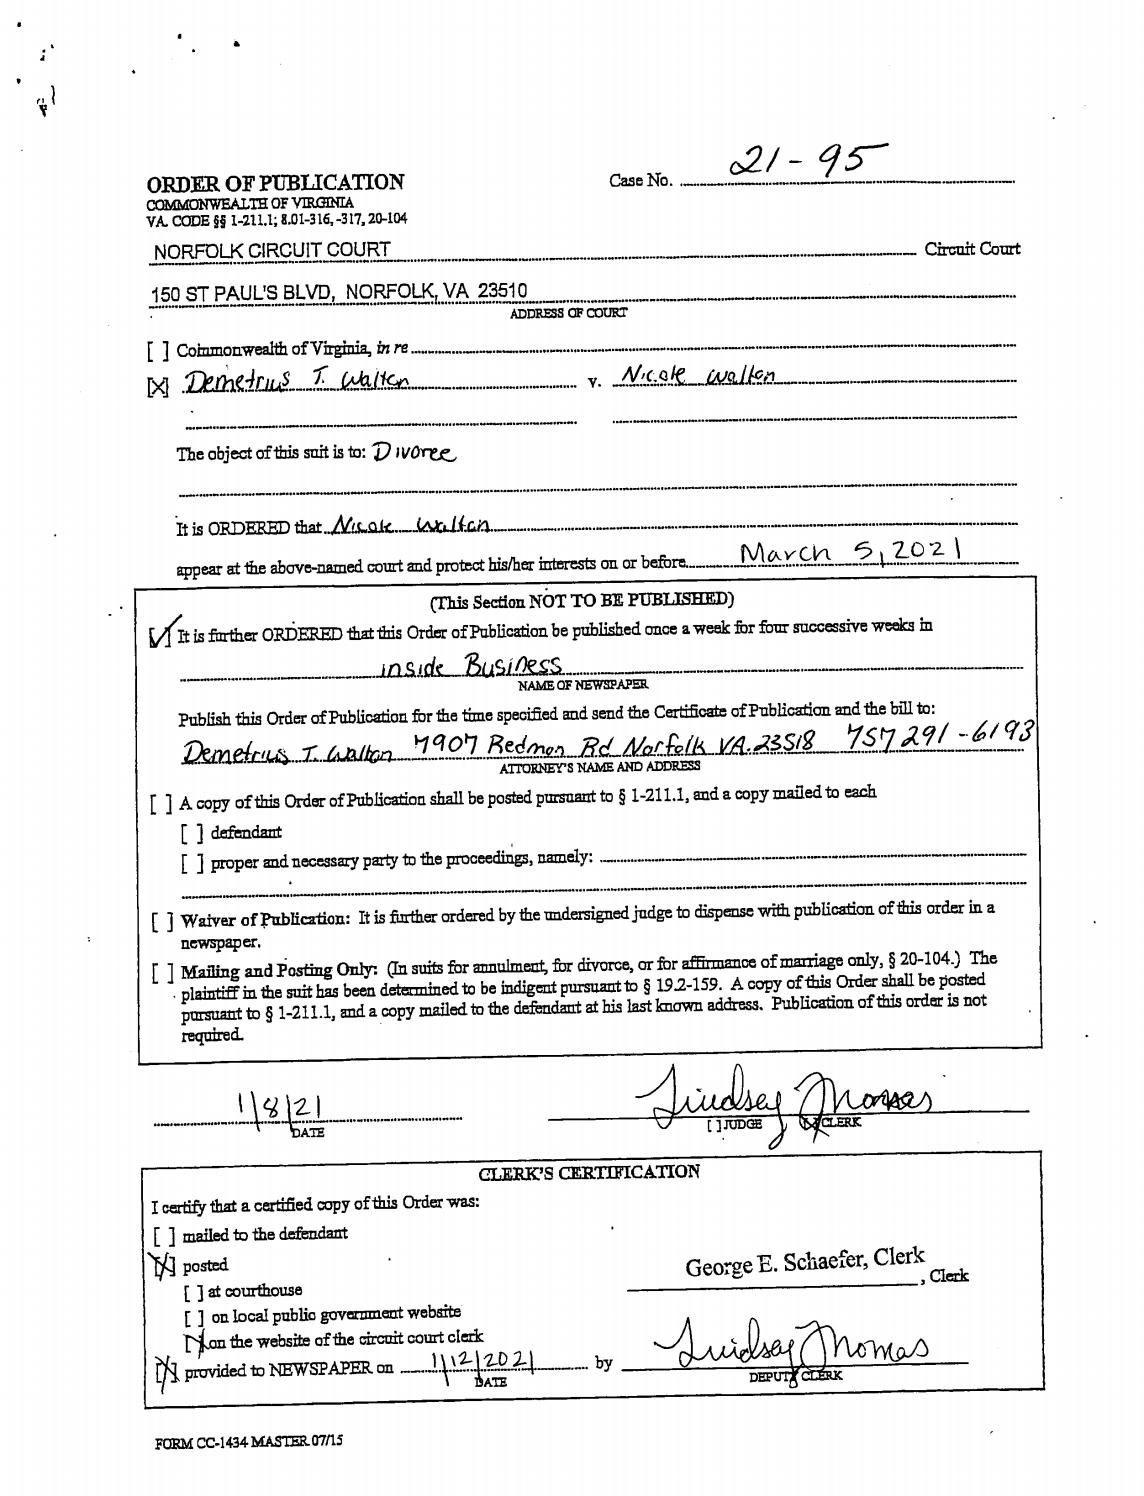 21-95
ORDER OF PUBLICATION Case No.
COMMONWEALTH OF VIRGINIA
VA. CODE §§ 1-211.1; 8.01-316, -317, 20-104
NORFOLK CIRCUIT COURT Circuit Court
150 ST PAUL'S BLVD, NORFOLK, VA 23510
ADDRESS OF COURT
[ ] Commonwealth of Virginia, in re
[X] Demetrius T. Walton v. Nicole Walton
The object of this suit is to: Divorce
It is ORDERED that Nicole Walton
appear at the above-named court and protect his/her interests on or before March 5, 2021
(This Section NOT TO BE PUBLISHED)
[✓] It is further ORDERED that this Order of Publication be published once a week for four successive weeks in
inside Business
NAME OF NEWSPAPER
Publish this Order of Publication for the time specified and send the Certificate of Publication and the bill to:
Demetrius T. Walton 7907 Redmon Rd Norfolk VA. 23518 757 291-6193
ATTORNEY'S NAME AND ADDRESS
[ ] A copy of this Order of Publication shall be posted pursuant to § 1-211.1, and a copy mailed to each
[ ] defendant
[ ] proper and necessary party to the proceedings, namely:
[ ] Waiver of Publication: It is further ordered by the undersigned judge to dispense with publication of this order in a
newspaper.
[ ] Mailing and Posting Only: (In suits for annulment, for divorce, or for affirmance of marriage only, § 20-104.) The
plaintiff in the suit has been determined to be indigent pursuant to § 19.2-159. A copy of this Order shall be posted
pursuant to § 1-211.1, and a copy mailed to the defendant at his last known address. Publication of this order is not
required.
1/8/21 Lindsey Thomas
DATE [ ] JUDGE [X] CLERK
CLERK'S CERTIFICATION
I certify that a certified copy of this Order was:
[ ] mailed to the defendant
[X] posted
George E. Schaefer, Clerk
, Clerk
[ ] at courthouse
[ ] on local public government website
[X] on the website of the circuit court clerk
[X] provided to NEWSPAPER on 1/12/2021 by Lindsey Thomas
DATE DEPUTY CLERK
FORM CC-1434 MASTER 07/15